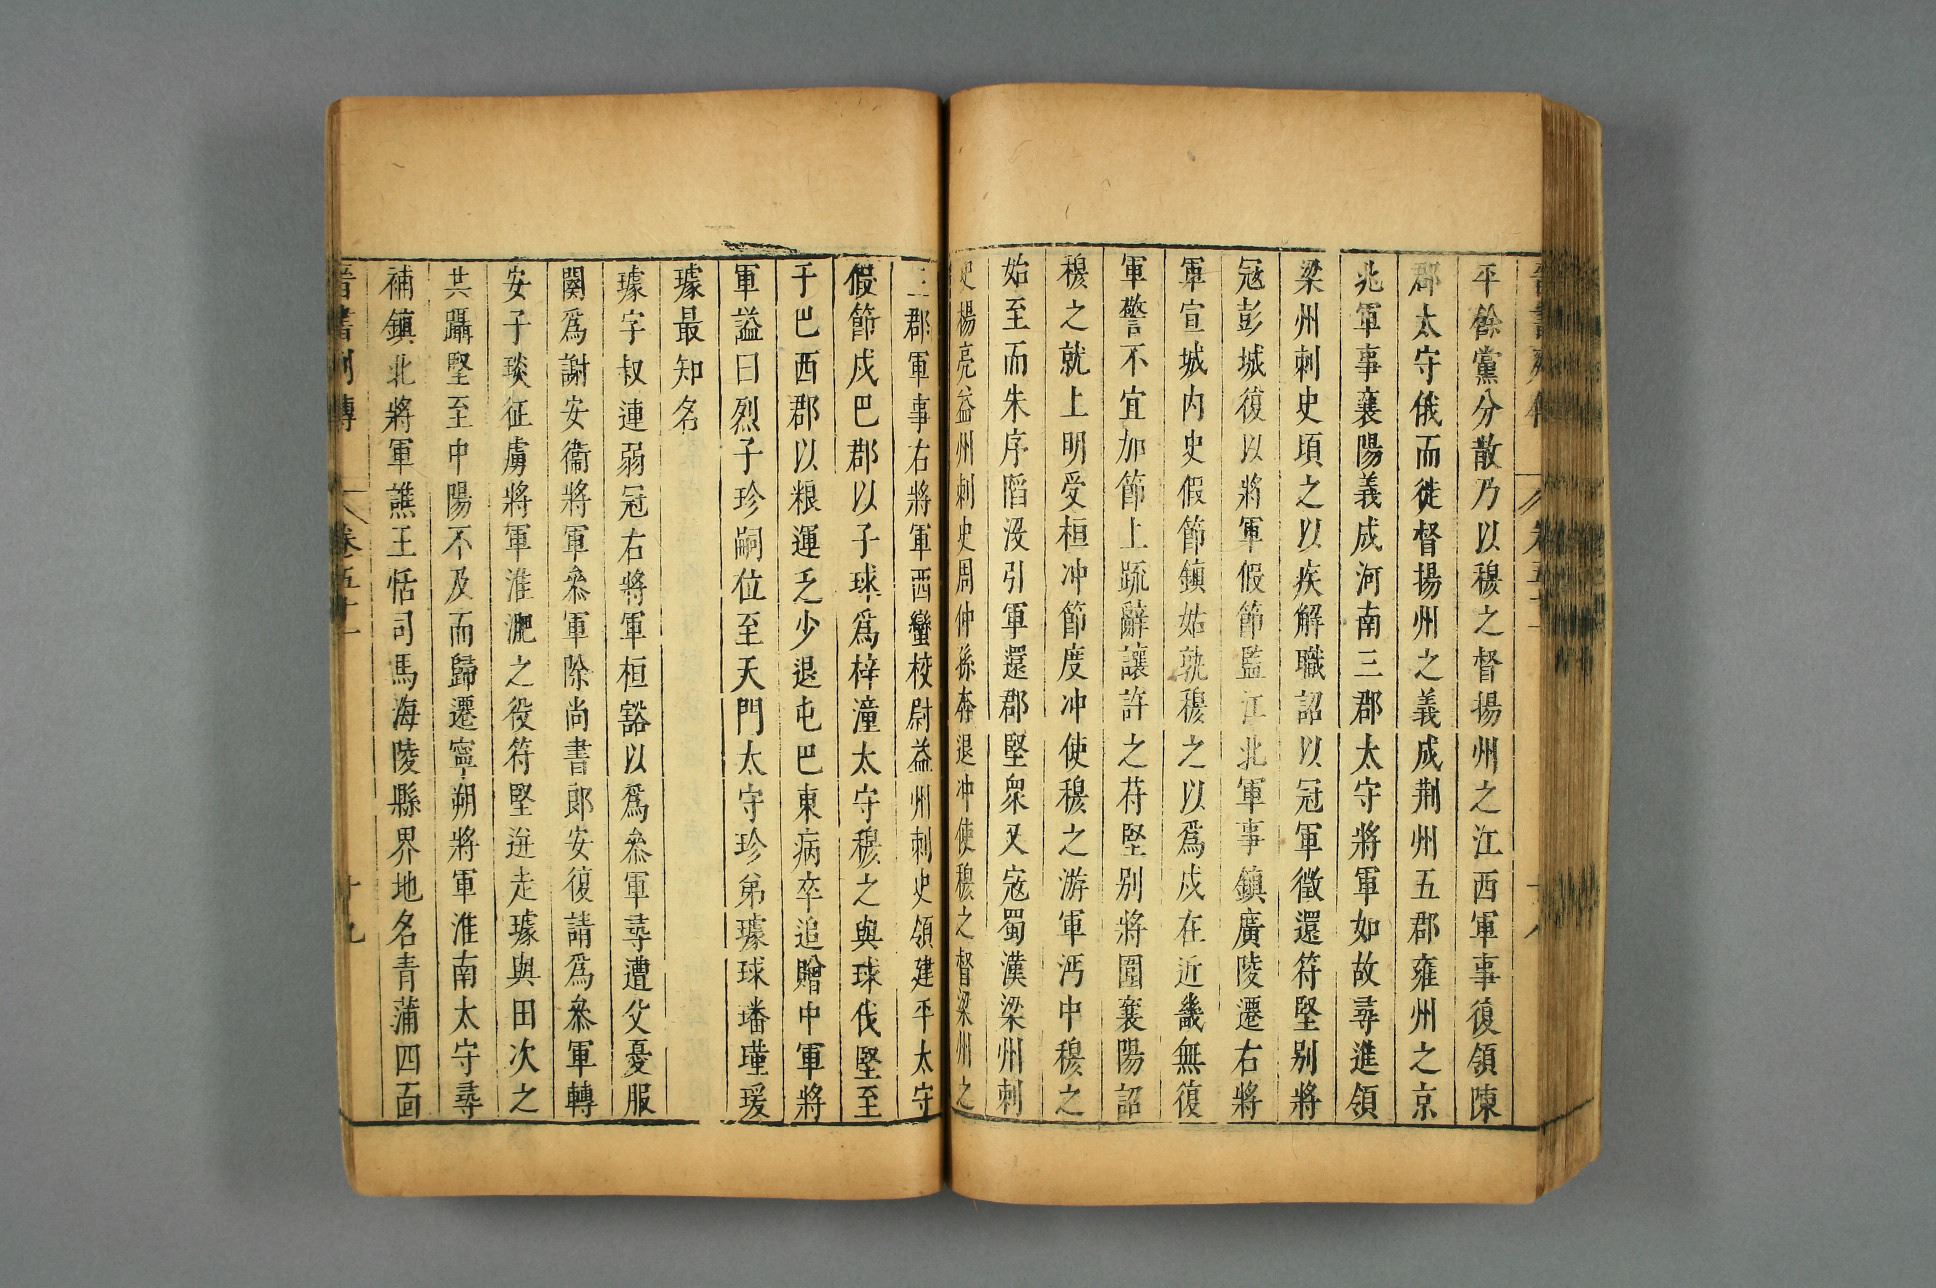 平餘黨分散乃以穆之督揚州之江西軍事復領陳
郡太守俄而徙督揚州之義成荆州五郡雍州之京
兆軍事襄陽義成河南三郡太守將軍如故尋進領
梁州刺史頃之以疾解職詔以冠軍徵還符堅别將
寇彭城復以將軍假節監江北軍事鎮廣陵遷右將
軍宣城内史假節鎮姑孰穆之以爲戍在近畿無復
軍警不宜加節上疏辭讓許之苻堅别將圍襄陽詔
穆之就上明受桓冲節度冲使穆之游軍沔中穆之
始至而朱序陷没引軍還郡堅衆又寇蜀漢梁州刺
史楊亮益州刺史周仲孫奔退冲使穆之督梁州之
三郡軍事右將軍西蠻校尉益州刺史領建平太守
假節戍巴郡以子球爲梓潼太守穆之與球伐堅至
于巴西郡以粮運乏少退屯巴東病卒追贈中軍將
軍謚曰烈子珍嗣位至天門太守珍弟璩球璠瑾瑗
璩最知名
璩字叔連弱冠右將軍桓豁以爲叅軍尋遭父憂服
闋爲謝安衞將軍叅軍除尚書郎安復請爲叅軍轉
安子琰征虜將軍淮淝之役符堅迸走璩與田次之
共躡堅至中陽不及而歸遷寧朔將軍淮南太守尋
補鎮北將軍譙王恬司馬海陵縣界地名青蒲四面
晋書列傳 卷五十一 十九